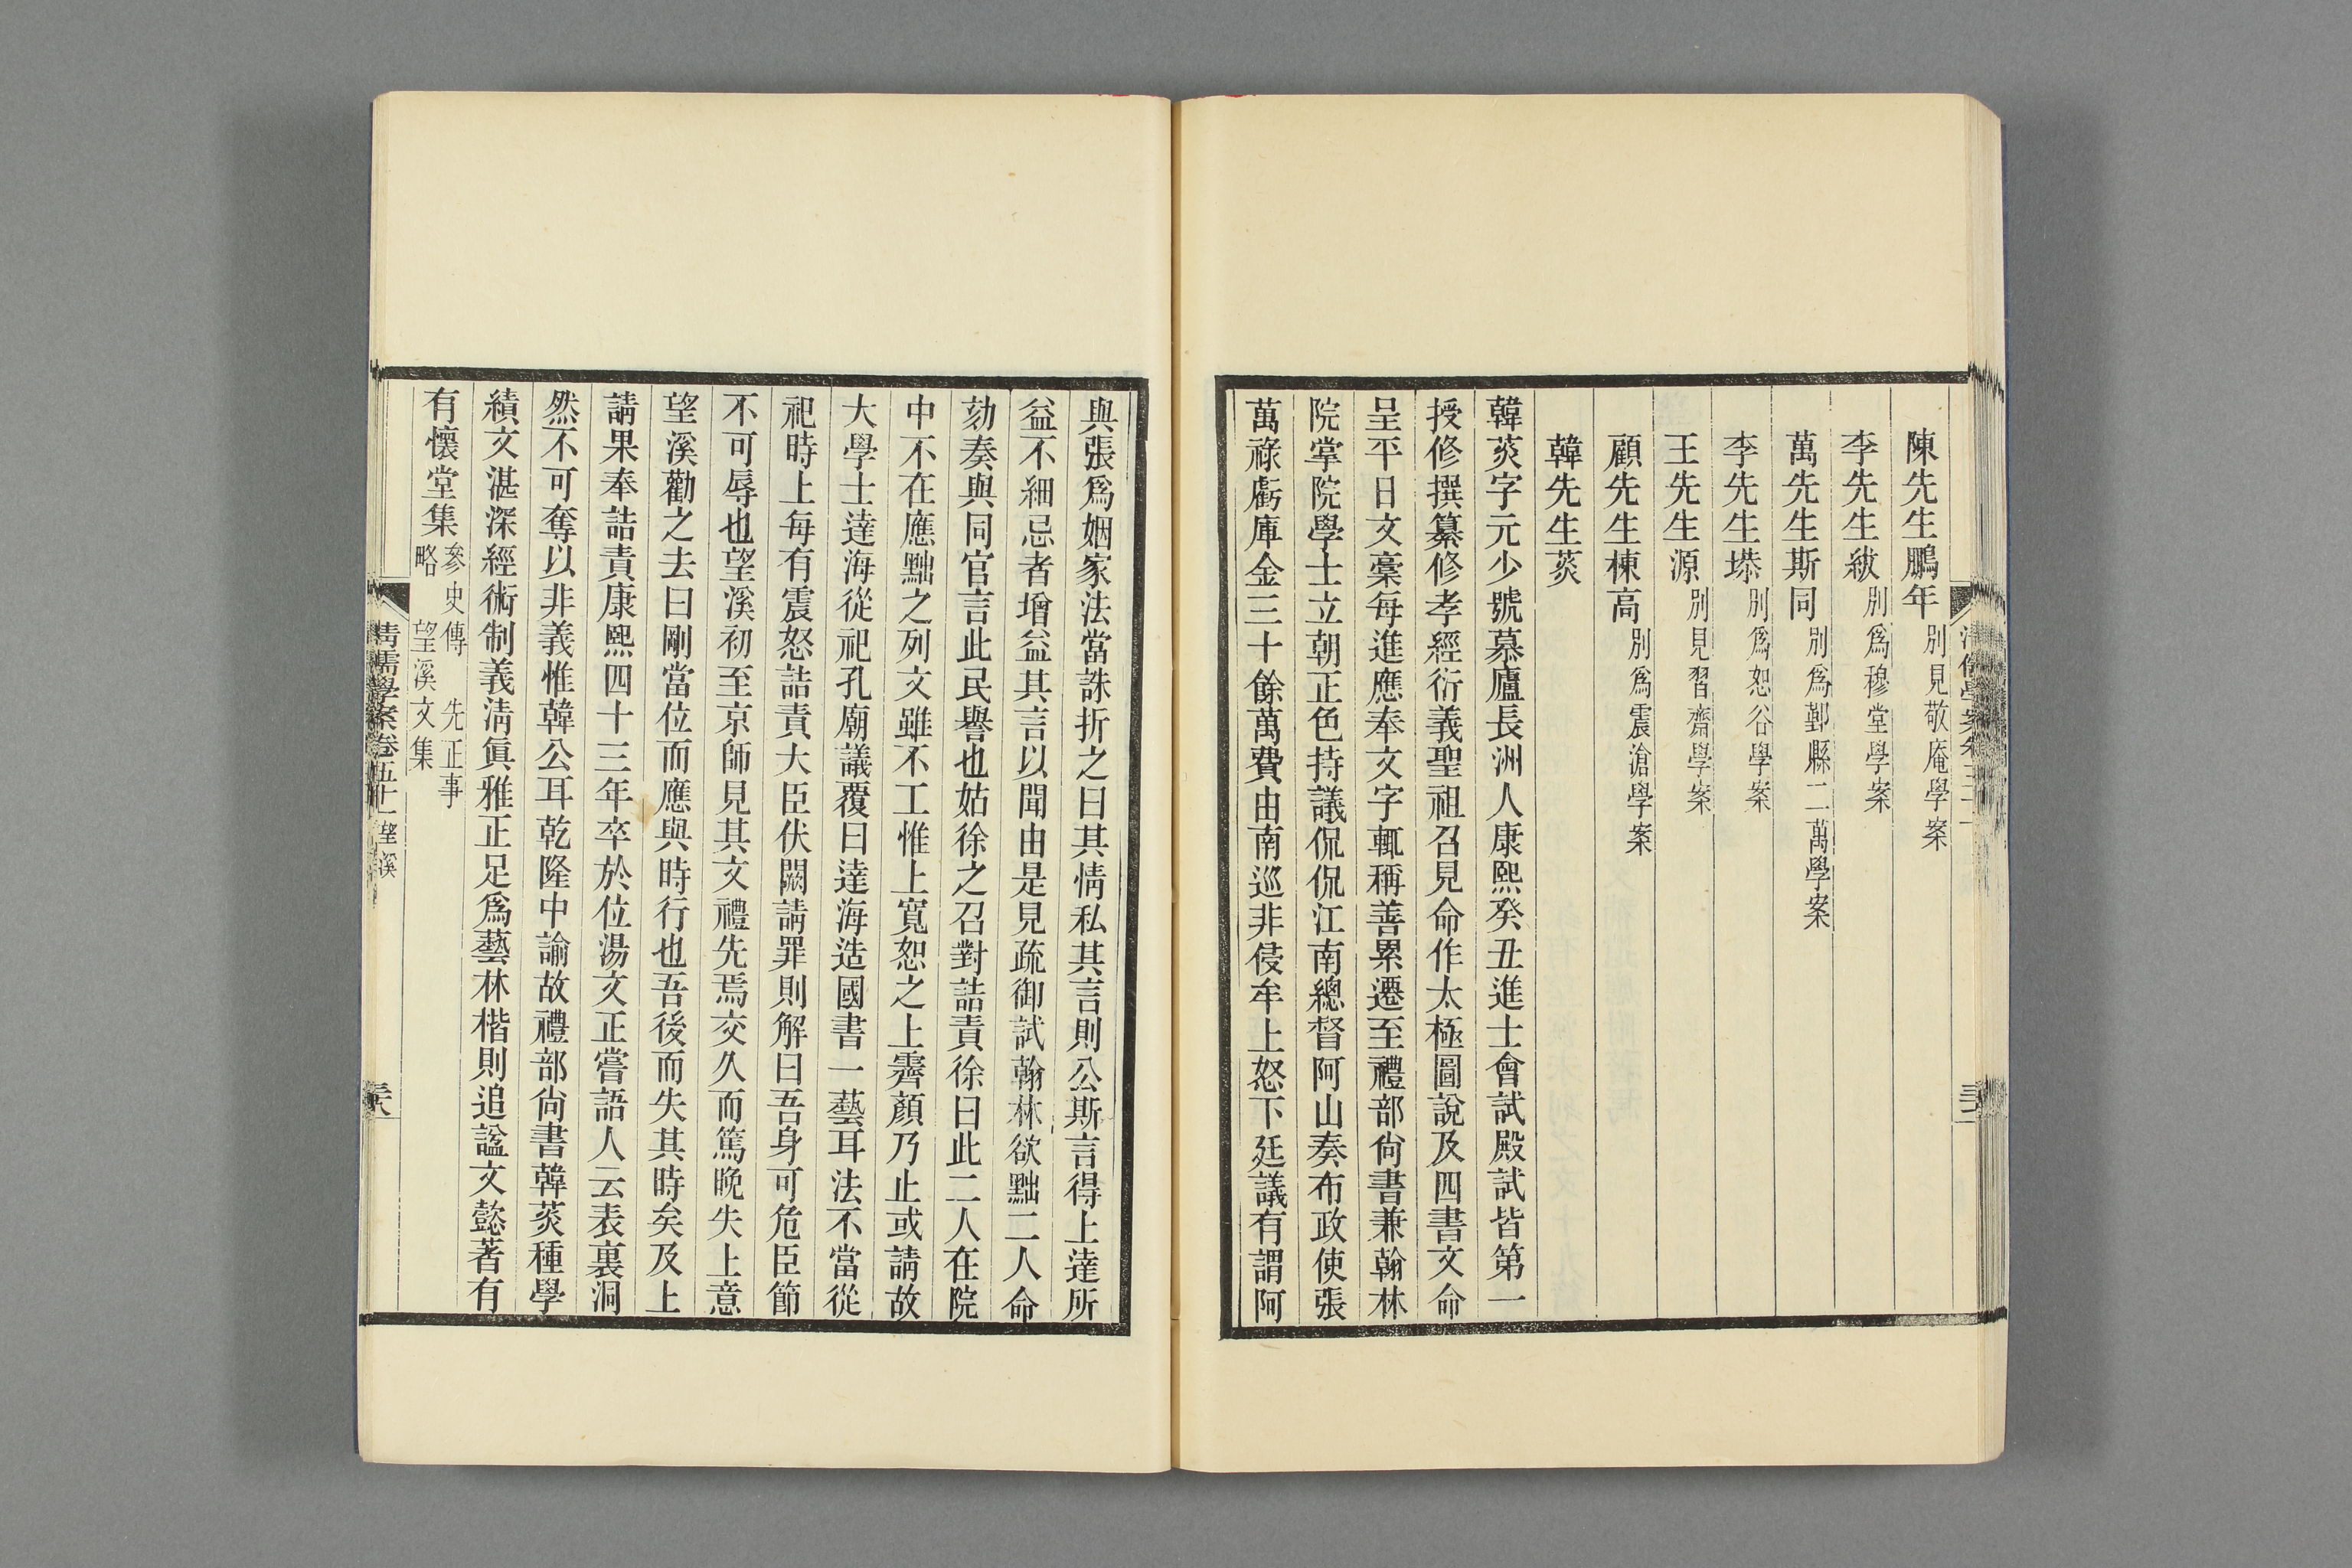 陳先生鵬年別見敬庵學案
李先生紱別爲穆堂學案
萬先生斯同別爲鄞縣二萬學案
李先生塨別爲恕谷學案
王先生源別見習齋學案
顧先生棟高別爲震滄學案
韓先生菼
韓菼字元少號慕廬長洲人康熙癸丑進士會試殿試皆第一
授修撰纂修孝經衍義聖祖召見命作太極圖說及四書文命
呈平日文稾每進應奉文字輒稱善累遷至禮部尙書兼翰林
院掌院學士立朝正色持議侃侃江南總督阿山奏布政使張
萬祿虧庫金三十餘萬費由南巡非侵牟上怒下廷議有謂阿
與張爲姻家法當誅折之曰其情私其言則公斯言得上達所
益不細忌者增益其言以聞由是見疏御試翰林欲黜二人命
劾奏與同官言此民譽也姑徐之召對詰責徐曰此二人在院
中不在應黜之列文雖不工惟上寬恕之上霽顏乃止或請故
大學士達海從祀孔廟議覆曰達海造國書一藝耳法不當從
祀時上每有震怒詰責大臣伏闕請罪則解曰吾身可危臣節
不可辱也望溪初至京師見其文禮先焉交久而篤晚失上意
望溪勸之去曰剛當位而應與時行也吾後而失其時矣及上
請果奉詰責康熙四十三年卒於位湯文正嘗語人云表裏洞
然不可奪以非義惟韓公耳乾隆中諭故禮部尙書韓菼種學
績文湛深經術制義淸眞雅正足爲藝林楷則追諡文懿著有
有懷堂集參史傳 先正事略 望溪文集
淸儒學案卷五十一望溪
三十八